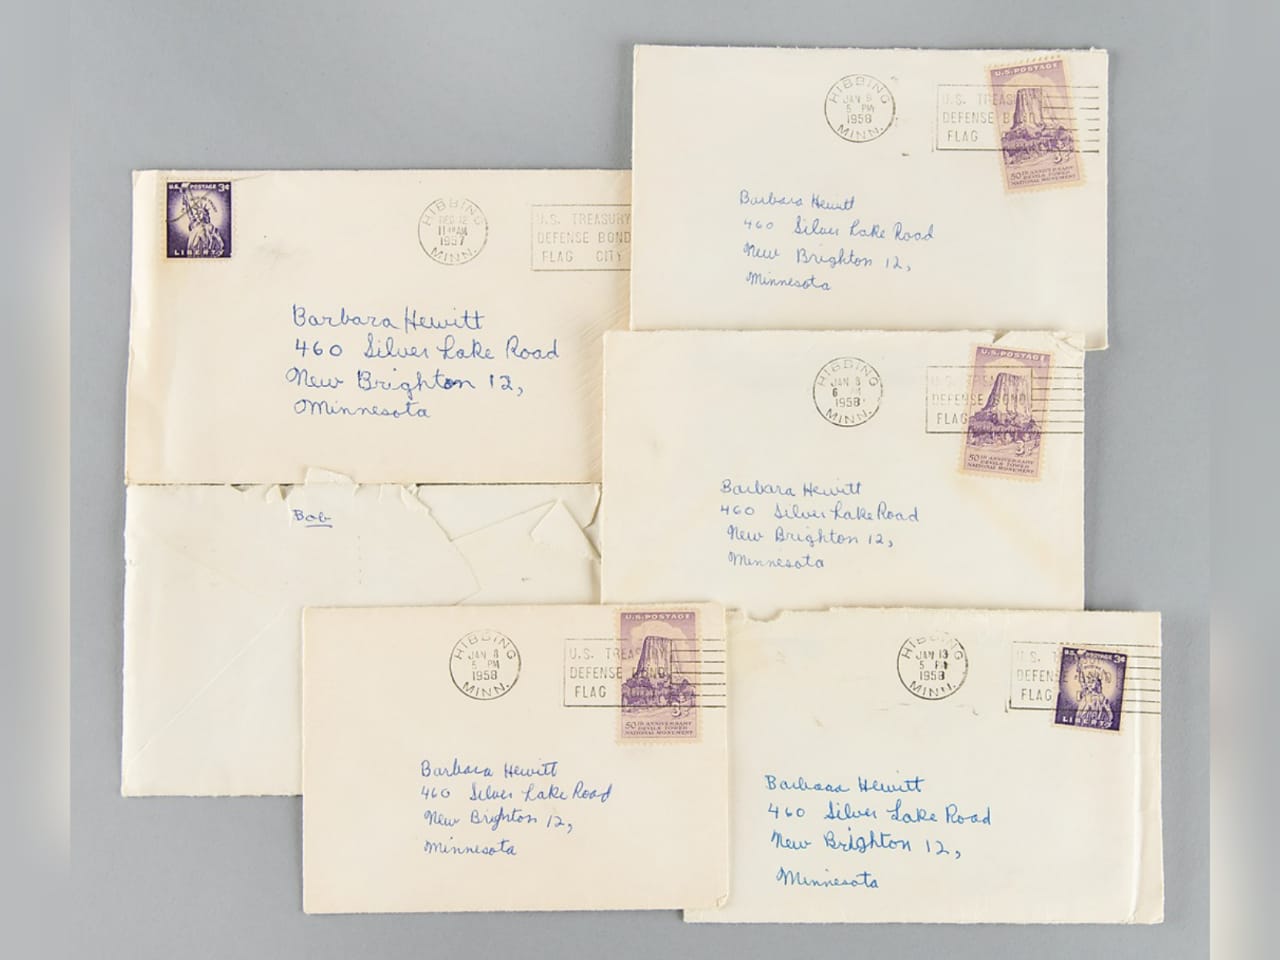 U.S. POSTAGE 3¢
LIBERTY
HIBBING
DEC 12
11 AM
1957
MINN.
U.S. TREASURY
DEFENSE BOND
FLAG CITY
Barbara Hewitt
460 Silver Lake Road
New Brighton 12,
Minnesota
HIBBING
JAN 8
5 PM
1958
MINN.
U.S. TREAS
DEFENSE BOND
FLAG
U.S. POSTAGE
3¢
50TH ANNIVERSARY
DEVILS TOWER
NATIONAL MONUMENT
Barbara Hewitt
460 Silver Lake Road
New Brighton 12,
Minnesota
HIBBING
JAN 8
6 PM
1958
MINN.
U.S. TREASU
DEFENSE BOND
FLAG
U.S. POSTAGE
3¢
50TH ANNIVERSARY
DEVILS TOWER
NATIONAL MONUMENT
Barbara Hewitt
460 Silver Lake Road
New Brighton 12,
Minnesota
Bob
HIBBING
JAN 8
5 PM
1958
MINN.
U.S. TREASU
DEFENSE BOND
FLAG
U.S. POSTAGE
3¢
50TH ANNIVERSARY
DEVILS TOWER
NATIONAL MONUMENT
Barbara Hewitt
460 Silver Lake Road
New Brighton 12,
Minnesota
HIBBING
JAN 13
5 PM
1958
MINN.
U.S. T
DEFENSE
FLAG
U.S. POSTAGE 3¢
LIBERTY
Barbara Hewitt
460 Silver Lake Road
New Brighton 12,
Minnesota